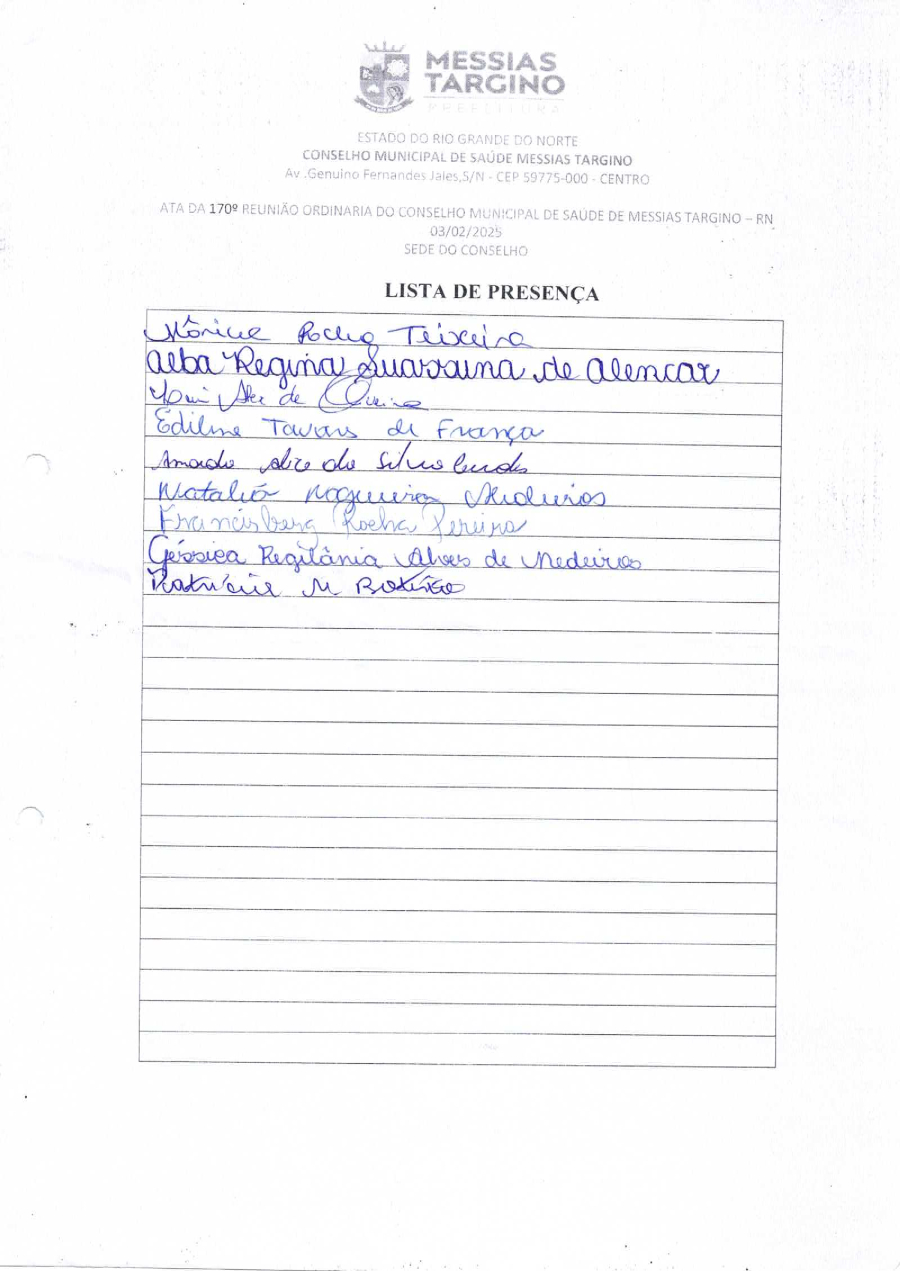 MESSIAS
TARGINO
PREFEITURA
ESTADO DO RIO GRANDE DO NORTE
CONSELHO MUNICIPAL DE SAÚDE MESSIAS TARGINO
Av .Genuino Fernandes Jales,S/N - CEP 59775-000 - CENTRO
ATA DA 170º REUNIÃO ORDINARIA DO CONSELHO MUNICIPAL DE SAÚDE DE MESSIAS TARGINO – RN
03/02/2025
SEDE DO CONSELHO
LISTA DE PRESENÇA
Rocha Teixeira
Alba Regina Suassuna de Alencar
de
Tavares de França
da Silva
Natalia Nogueira Medeiros
Francisberg Rocha Pereira
Géssica Regilânia Alves de Medeiros
M